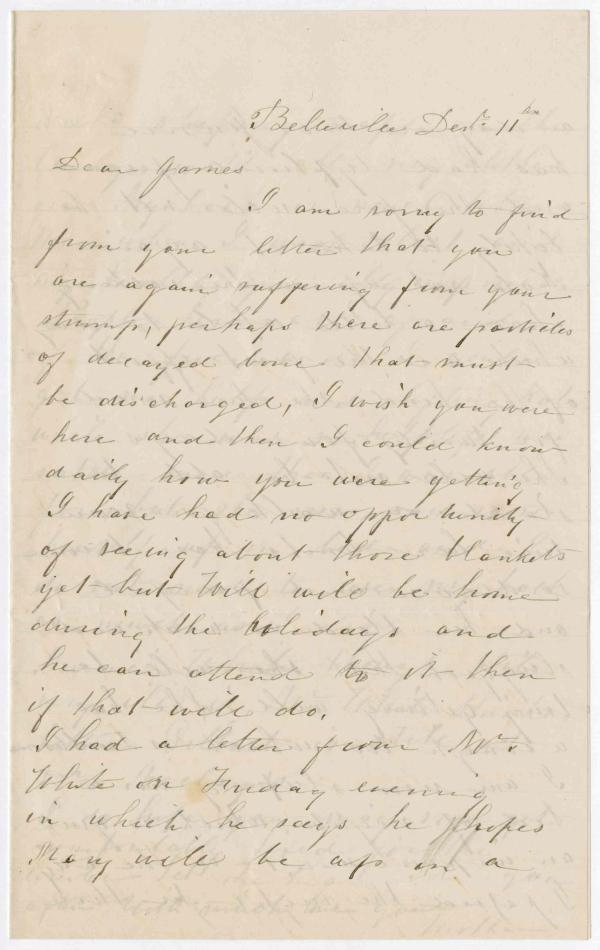 Belleville Dec. 11th
Dear James
I am sorry to find
from your letter that you
are again suffering from your
stump, perhaps there are particles
of decayed bone that must
be discharged, I wish you were
here and then I could know
daily how you were getting
I have had no opportunity
of seeing about those blankets
yet but Will will be home
during the holidays and
he can attend to it then
if that will do.
I had a letter from Mr.
White on Friday evening
in which he says he hopes
Mary will be up in a